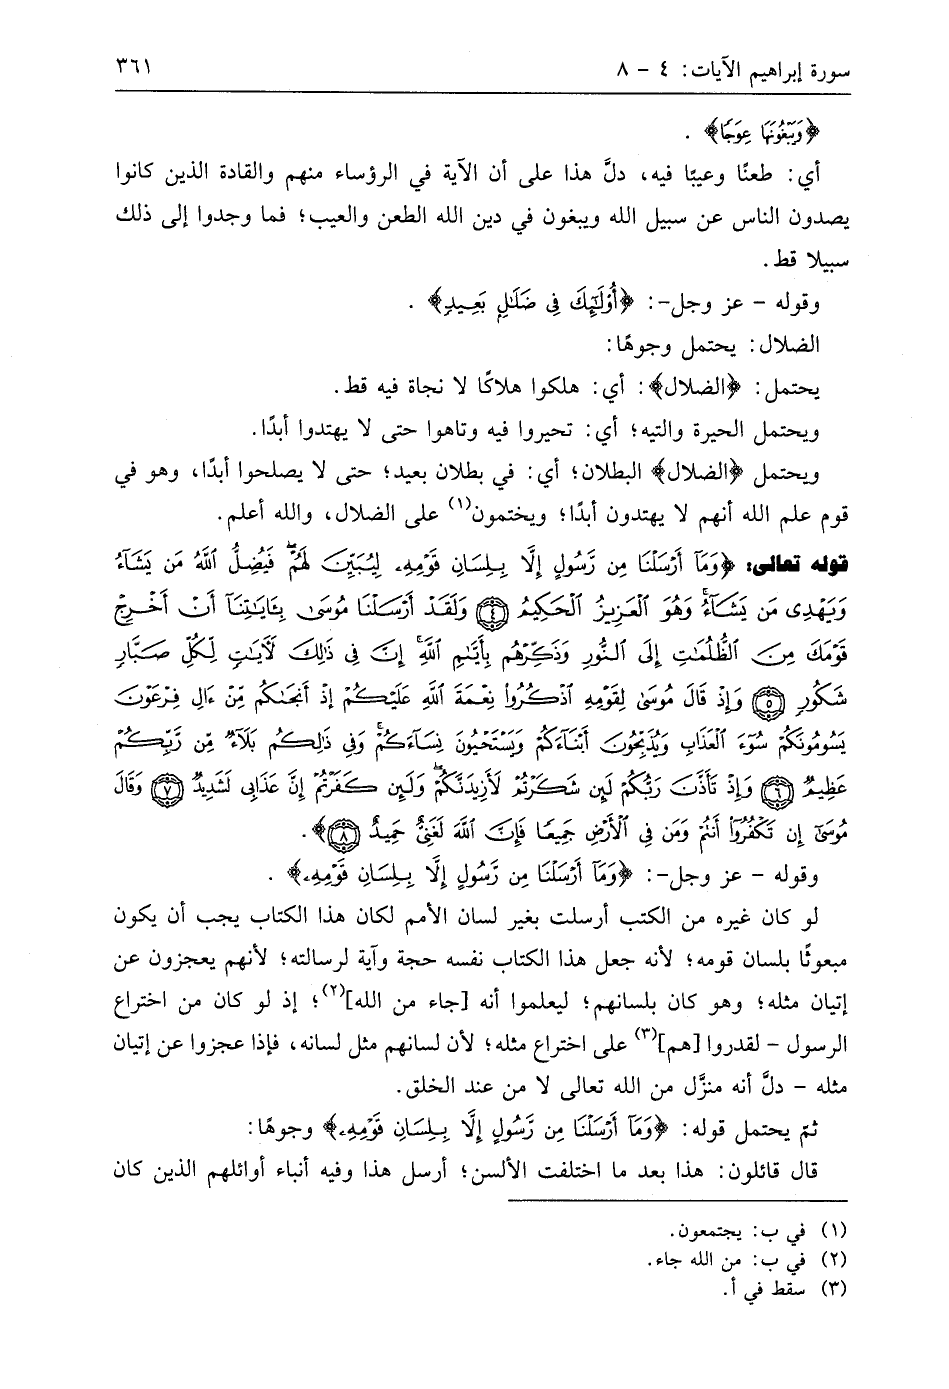 سورة إبراهيم الآيات: ٤ - ٨ ٣٦١
﴿وَيَبْغُونَهَا عِوَجًا﴾ .
أي: طعنًا وعيبًا فيه، دلَّ هذا على أن الآية في الرؤساء منهم والقادة الذين كانوا
يصدون الناس عن سبيل الله ويبغون في دين الله الطعن والعيب؛ فما وجدوا إلى ذلك
سبيلا قط.
وقوله - عز وجل-: ﴿أُوْلَٰٓئِكَ فِى ضَلَٰلٍۭ بَعِيدٍ﴾ .
الضلال: يحتمل وجوهًا:
يحتمل: ﴿الضلال﴾: أي: هلكوا هلاكًا لا نجاة فيه قط.
ويحتمل الحيرة والتيه؛ أي: تحيروا فيه وتاهوا حتى لا يهتدوا أبدًا.
ويحتمل ﴿الضلال﴾ البطلان؛ أي: في بطلان بعيد؛ حتى لا يصلحوا أبدًا، وهو في
قوم علم الله أنهم لا يهتدون أبدًا؛ ويختمون(١) على الضلال، والله أعلم.
قوله تعالى: ﴿وَمَآ أَرْسَلْنَا مِن رَّسُولٍ إِلَّا بِلِسَانِ قَوْمِهِۦ لِيُبَيِّنَ لَهُمْۖ فَيُضِلُّ ٱللَّهُ مَن يَشَآءُ
وَيَهْدِى مَن يَشَآءُۚ وَهُوَ ٱلْعَزِيزُ ٱلْحَكِيمُ ۝٤ وَلَقَدْ أَرْسَلْنَا مُوسَىٰ بِـَٔايَٰتِنَآ أَنْ أَخْرِجْ
قَوْمَكَ مِنَ ٱلظُّلُمَٰتِ إِلَى ٱلنُّورِ وَذَكِّرْهُم بِأَيَّىٰمِ ٱللَّهِۚ إِنَّ فِى ذَٰلِكَ لَأٓيَٰتٍ لِّكُلِّ صَبَّارٍ
شَكُورٍ ۝٥ وَإِذْ قَالَ مُوسَىٰ لِقَوْمِهِ ٱذْكُرُوا۟ نِعْمَةَ ٱللَّهِ عَلَيْكُمْ إِذْ أَنجَىٰكُم مِّنْ ءَالِ فِرْعَوْنَ
يَسُومُونَكُمْ سُوٓءَ ٱلْعَذَابِ وَيُذَبِّحُونَ أَبْنَآءَكُمْ وَيَسْتَحْيُونَ نِسَآءَكُمْۚ وَفِى ذَٰلِكُم بَلَآءٌ مِّن رَّبِّكُمْ
عَظِيمٌ ۝٦ وَإِذْ تَأَذَّنَ رَبُّكُمْ لَئِن شَكَرْتُمْ لَأَزِيدَنَّكُمْۖ وَلَئِن كَفَرْتُمْ إِنَّ عَذَابِى لَشَدِيدٌ ۝٧ وَقَالَ
مُوسَىٰٓ إِن تَكْفُرُوٓا۟ أَنتُمْ وَمَن فِى ٱلْأَرْضِ جَمِيعًا فَإِنَّ ٱللَّهَ لَغَنِىٌّ حَمِيدٌ ۝٨﴾.
وقوله - عز وجل-: ﴿وَمَآ أَرْسَلْنَا مِن رَّسُولٍ إِلَّا بِلِسَانِ قَوْمِهِۦ﴾ .
لو كان غيره من الكتب أرسلت بغير لسان الأمم لكان هذا الكتاب يجب أن يكون
مبعوثًا بلسان قومه؛ لأنه جعل هذا الكتاب نفسه حجة وآية لرسالته؛ لأنهم يعجزون عن
إتيان مثله؛ وهو كان بلسانهم؛ ليعلموا أنه [جاء من الله](٢)؛ إذ لو كان من اختراع
الرسول - لقدروا [هم](٣) على اختراع مثله؛ لأن لسانهم مثل لسانه، فإذا عجزوا عن إتيان
مثله - دلَّ أنه منزَّل من الله تعالى لا من عند الخلق.
ثمّ يحتمل قوله: ﴿وَمَآ أَرْسَلْنَا مِن رَّسُولٍ إِلَّا بِلِسَانِ قَوْمِهِۦ﴾ وجوهًا:
قال قائلون: هذا بعد ما اختلفت الألسن؛ أرسل هذا وفيه أنباء أوائلهم الذين كان
(١) في ب: يجتمعون.
(٢) في ب: من الله جاء.
(٣) سقط في أ.